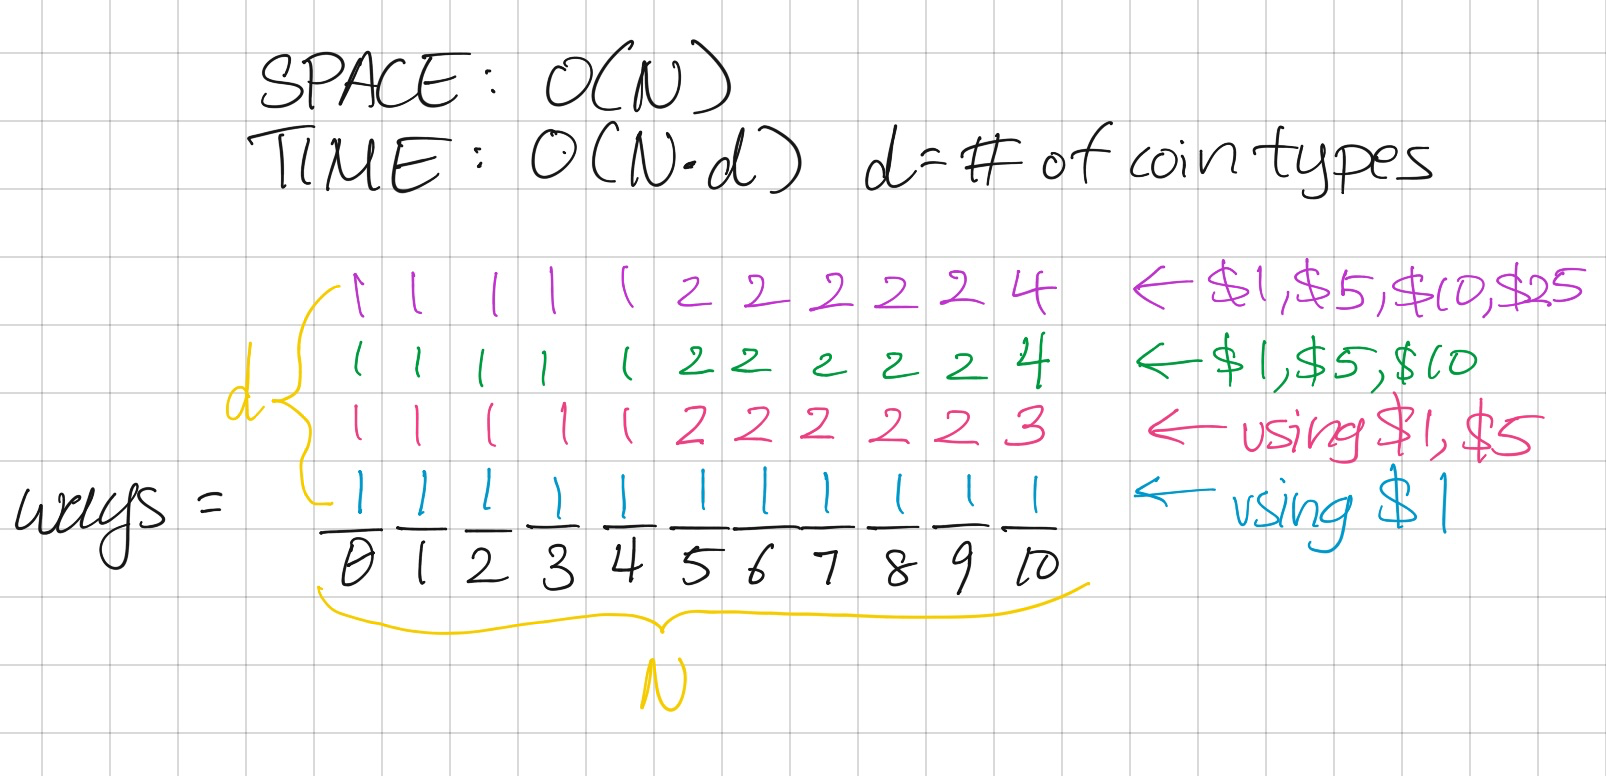 SPACE: O(N)
TIME: O(N·d) d=# of coin types
1 1 1 1 1 2 2 2 2 2 4 ← $1,$5,$10,$25
1 1 1 1 1 2 2 2 2 2 4 ← $1,$5,$10
d
1 1 1 1 1 2 2 2 2 2 3 ← using $1,$5
ways = 1 1 1 1 1 1 1 1 1 1 1 ← using $1
0 1 2 3 4 5 6 7 8 9 10
N